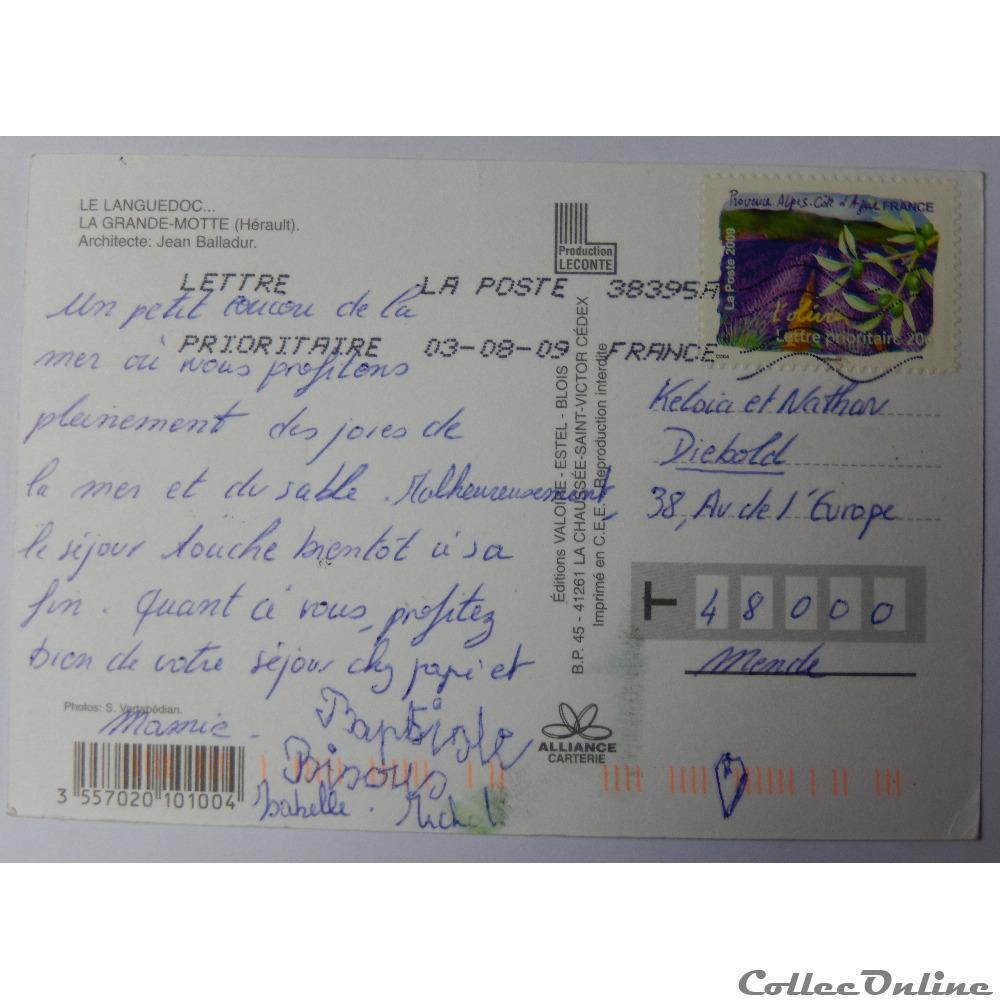 LE LANGUEDOC...
LA GRANDE-MOTTE (Hérault).
Architecte: Jean Balladur.
Production
LECONTE
Provence-Alpes-Côte d'Azur FRANCE
La Poste 2009
l'olivier
Lettre prioritaire 20g
LETTRE LA POSTE 38395A
PRIORITAIRE 03-08-09 FRANCE
Un petit coucou de la
mer où nous profitons
pleinement des joies de
la mer et du sable. Malheureusement,
le séjour touche bientôt à sa
fin. Quant à vous, profitez
bien de votre séjour chez papi et
Mamie.
Baptiste
Bisous
Isabelle. Michel.
Photos: S. Vartabédian.
3 557020 101004
Éditions VALOIRE - ESTEL - BLOIS
B.P. 45 - 41261 LA CHAUSSÉE-SAINT-VICTOR CÉDEX
Imprimé en C.E.E. - Reproduction interdite
ALLIANCE
CARTERIE
Keloia et Nathan
Diebold
38, Av de l'Europe
48000
Mende
CollecOnline